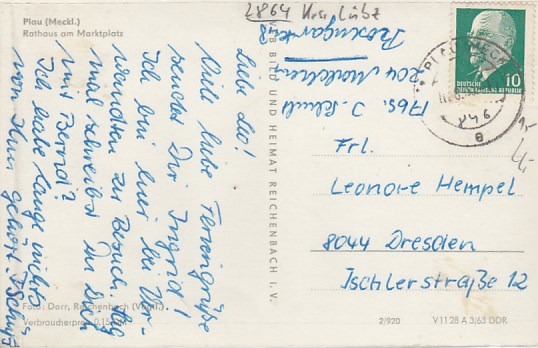 Plau (Meckl.)
Rathaus am Marktplatz
Liebe Leo!
Viele liebe Feriengrüße
sendet Dir Ingrid!
Ich bin hier bei Ver-
wandten zur Besuch. Sag
mal schreibst Du Dich
mit Bernd?
Ich habe lange nichts
von Ihm gehört. Tschüß
Foto: Darr, Reichenbach (Vogtl.)
Verbraucherpreis 0,15
VEB BILD UND HEIMAT REICHENBACH I. V.
2864 Krs. Lübz
Rosengarten
204 Malchin
DEUTSCHE DEMOKRATISCHE REPUBLIK
10
Frl.
Leonore Hempel
8044 Dresden
Ischlerstraße 12
2/920
V 11 28 A 3/63 DDR